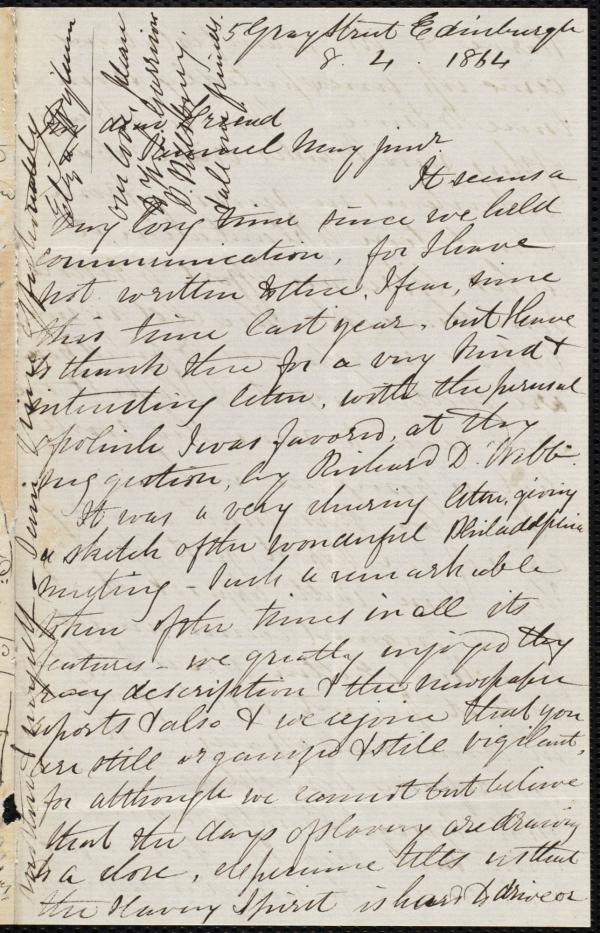 5 Gray Street Edinburgh
8. 4. 1864
My dear Friend
Samuel May junr
It seems a
very long time since we held
communication, for I have
not written to thee, I fear, since
this time last year, but I have
to thank thee for a very kind &
interesting letter, with the perusal
of which I was favored, at thy
suggestion, by Richard D. Webb
It was a very cheering letter, giving
a sketch of the wonderful Philadelphia
meeting - Such a remarkable
token of the times in all its
features - we greatly enjoyed thy
racy description & the newspaper
reports & also & we rejoice that you
are still organized & still vigilant,
for although we cannot but believe
that the days of slavery are drawing
to a close, experience tells us that
the Slavery Spirit is hard to drive or
our love, dear
W L Garrison
&
all our friends.
Eliza Wigham